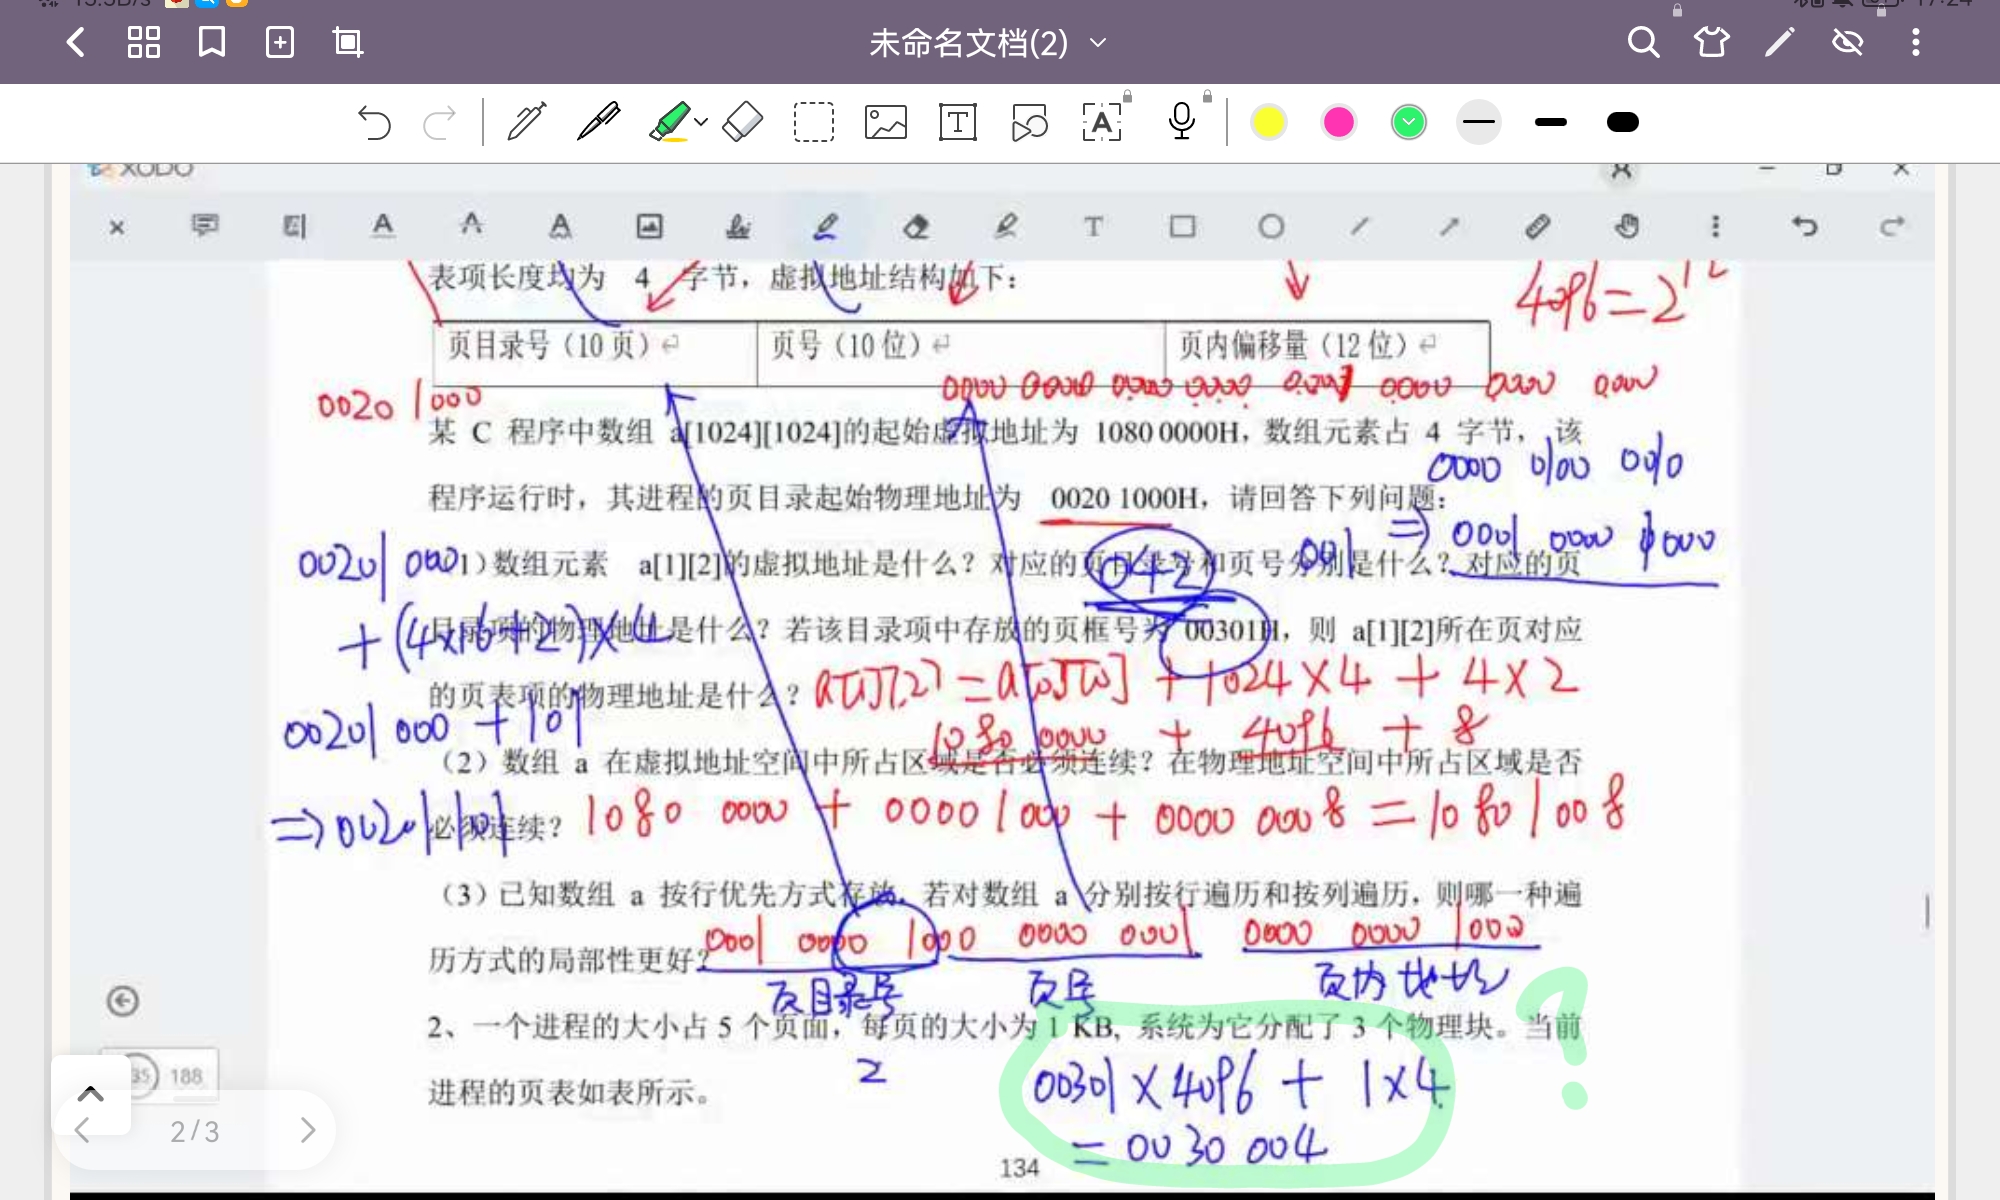 未命名文档(2)
XODO
表项长度均为 4 字节，虚拟地址结构如下：
4096=2¹²
页目录号（10 页） 页号（10 位） 页内偏移量（12 位）
0020 1000
0000 0000 0000 0000 0001 0000 0000 0000
某 C 程序中数组 a[1024][1024]的起始虚拟地址为 1080 0000H，数组元素占 4 字节，该
0000 0100 0010
程序运行时，其进程的页目录起始物理地址为 0020 1000H，请回答下列问题：
⇒ 0001 0000 1000
00201 000
1）数组元素 a[1][2]的虚拟地址是什么？对应的页目录号和页号分别是什么？对应的页
042
001
目录项的物理地址是什么？若该目录项中存放的页框号为 00301H，则 a[1][2]所在页对应
+(4×16+2)×4
的页表项的物理地址是什么？
a[1][2]=a[0][0]+1024×4+4×2
00201 000+101
1080 0000 + 4096 + 8
（2）数组 a 在虚拟地址空间中所占区域是否必须连续？在物理地址空间中所占区域是否
必须连续？
1080 0000 + 0000 1000 + 0000 0008 = 1080 1008
⇒00201 101
（3）已知数组 a 按行优先方式存放，若对数组 a 分别按行遍历和按列遍历，则哪一种遍
历方式的局部性更好？
0001 0000 1000 0000 0001 0000 0000 1000
页目录号 页号 页内地址
2、一个进程的大小占 5 个页面，每页的大小为 1 KB, 系统为它分配了 3 个物理块。当前
?
2
00301×4096+1×4
进程的页表如表所示。
=0030 004
134
35 188
2/3